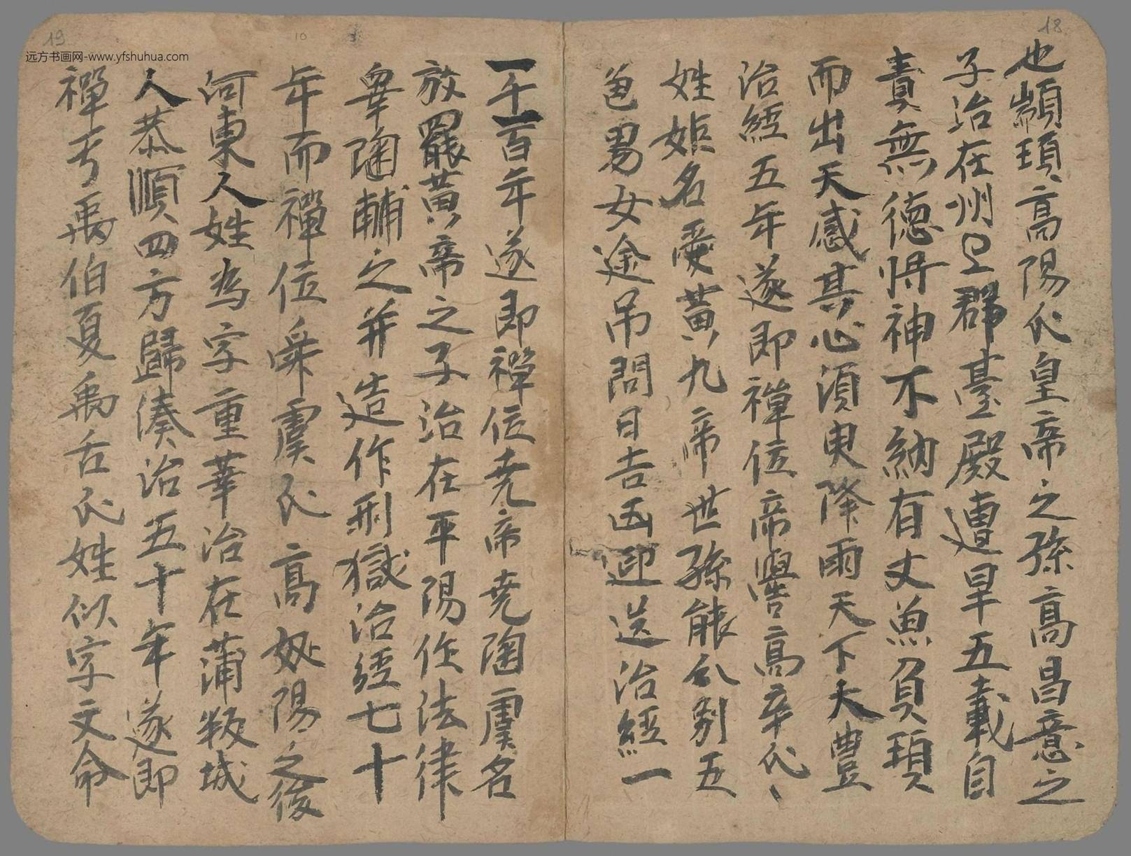 18
也顓頊高陽氏皇帝之孫高昌意之
子治在州卫郡臺殿遭旱五載自
責無德將神不納有丈魚負頊
而出天感其心須臾降雨天下大豐
治經五年遂即禪位帝嚳高辛氏、
姓姬名夋黃九帝世孫能別五
色男女途吊問日吉凶迎送治經一
19
远方书画网-www.yfshuhua.com
一千一百年遂即禪位堯帝堯陶虞名
放羆黃帝之子治在平陽作法律
皋陶輔之并造作刑獄治經七十
年而禪位舜虞氏高奴陽之後
河東人姓為字重華治在蒲坂城
人恭順四方歸湊治五十年遂即
禪于禹伯夏禹舌氏姓似字文命